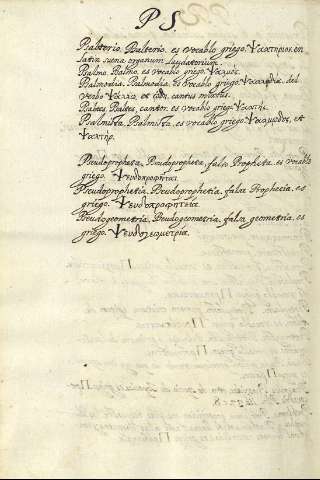 PS.
Psalterio. Psalterio. es vocablo griego. Ψαλτήριον. en
latin suena organum laudatorium.
Psalmo. Psalmo, es vocablo griego. Ψαλμός.
Psalmodia. Psalmodia. es vocablo griego. Ψαλμῳδία, del
verbo Ψάλλω, et ᾠδή, cantus
Psaltes, Psaltes, cantor. es vocablo griego Ψάλτης.
Psalmista, Psalmista, es vocablo griego. Ψαλμῳδός, et
Ψάλτήρ.
Pseudopropheta, Pseudopropheta, falso Propheta, es vocablo
griego. Ψευδοπροφήτης.
Pseudoprophetia. Pseudoprophetia, falsa Prophecia, es
griego. Ψευδοπροφήτεία.
Pseudogeometria, Pseudogeometria, falsa geometria, es
griego. Ψευδογεωμετρία.